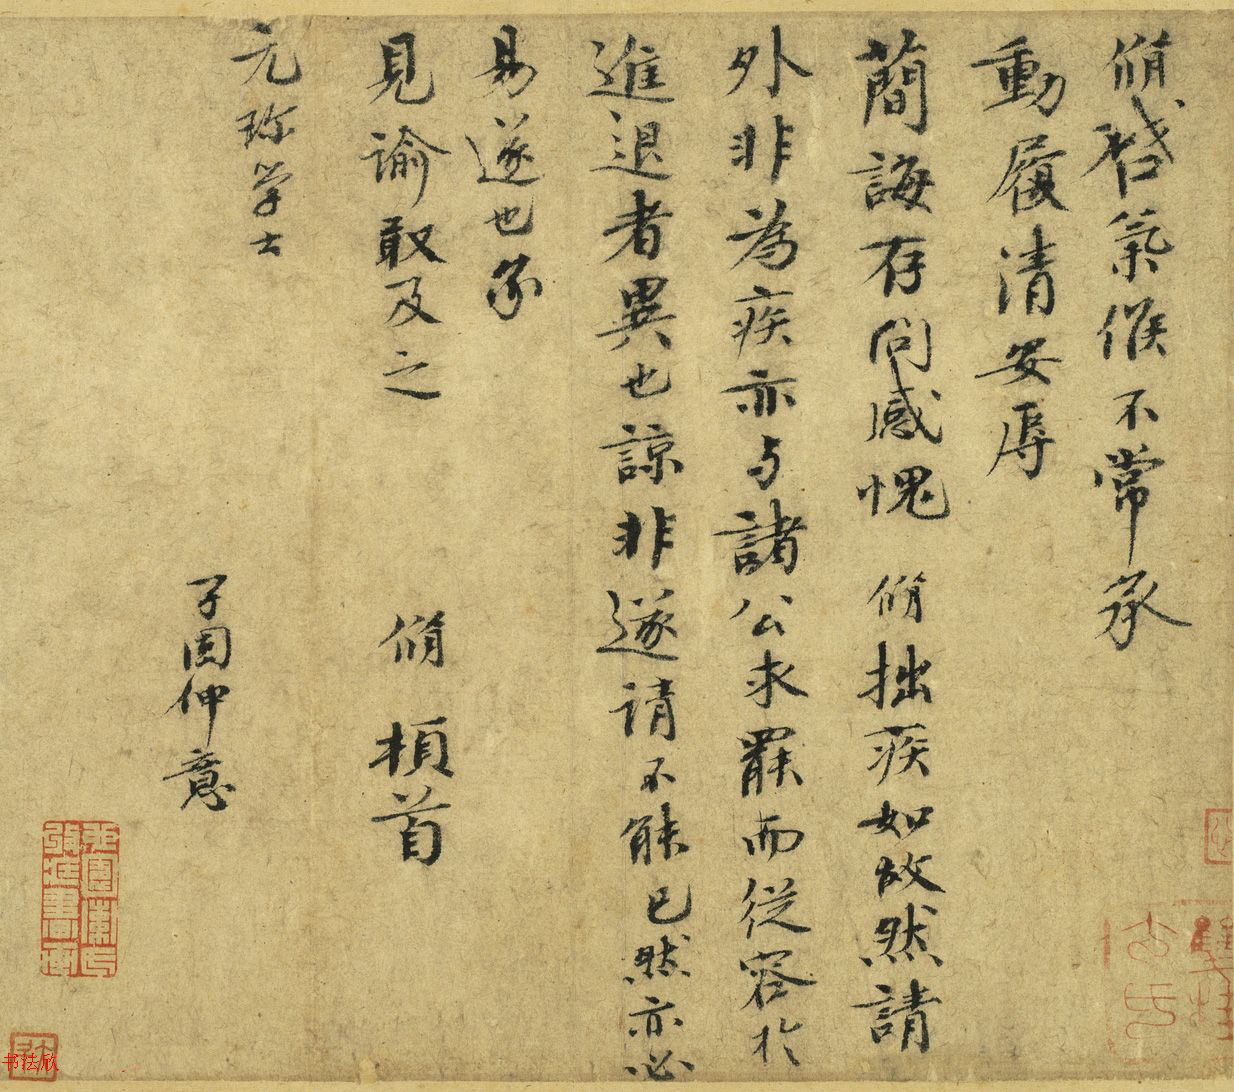 脩啓氣候不常承
動履清安辱
簡誨存問感愧 脩拙疾如故然請
外非為疾亦与諸公求罷而從容於
進退者異也諒非遂請不能已然亦必
易遂也承
見諭敢及之 脩 頓首
元珎学士
子固仲意
书法欣